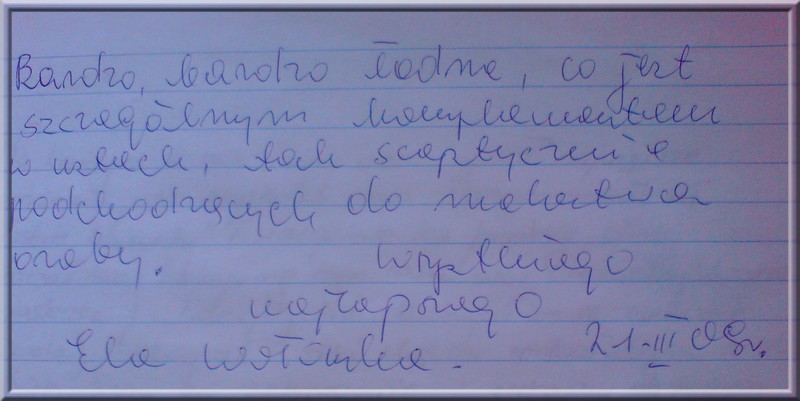 Bardzo, bardzo ładne, co jest
szczególnym komplementem
w ustach, tak sceptycznie
podchodzących do
osoby. Wszystkiego
najlepszego
Ela 21.III 08r.